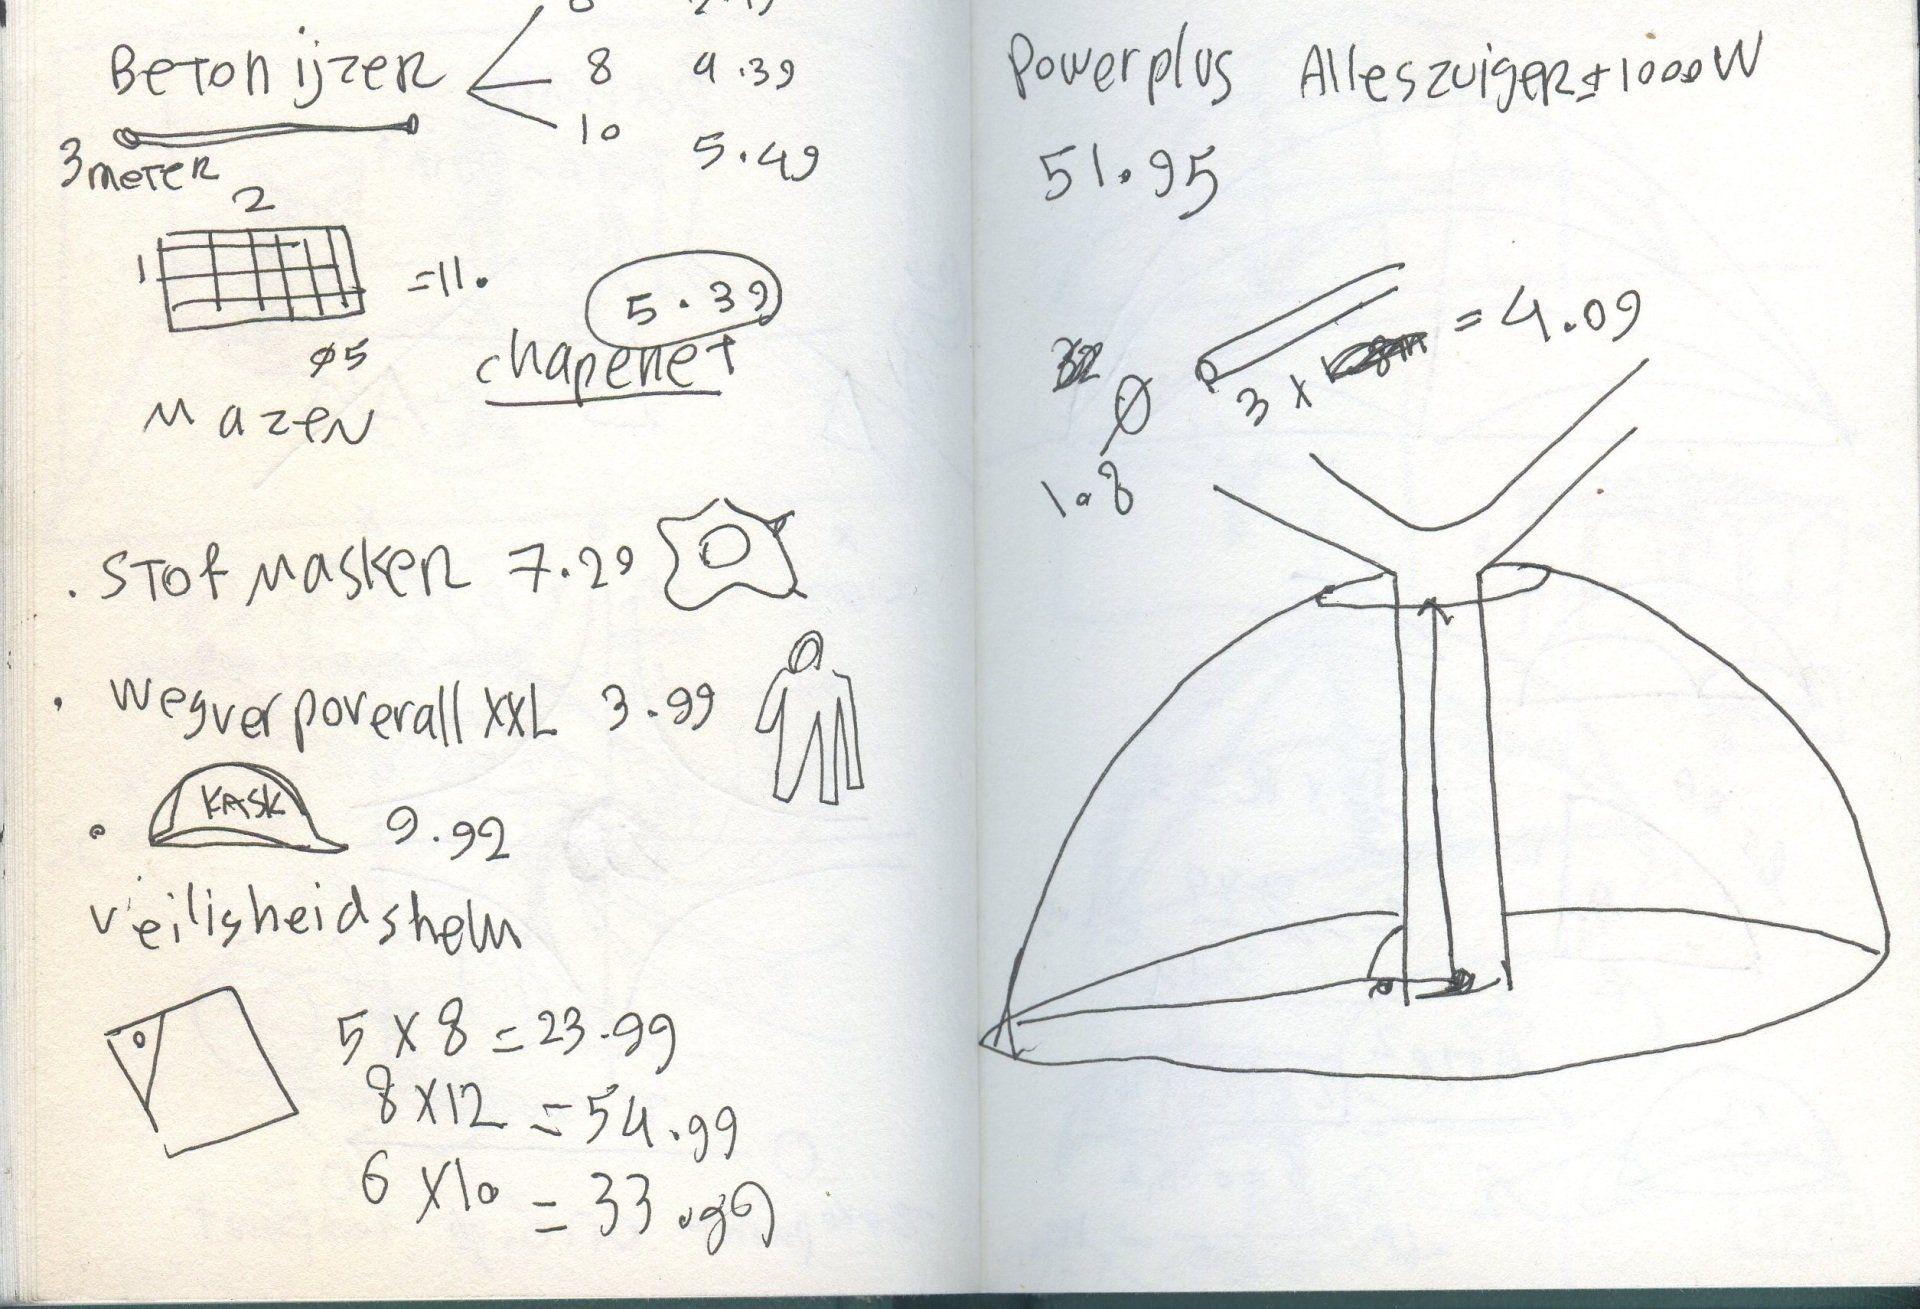 Beton ijzer
8 4.39
10 5.49
3 meter
2
1
=11.
5.39
chapenet
ø5
Mazen
. Stof Masker 7.29
. Wegverpoverall XXL 3.99
KASK
9.92
veiligheidshelm
5 X 8 = 23.99
8 X 12 = 54.99
6 X 10 = 33.99
Powerplus Alleszuiger ± 1000W
51.95
= 4.09
3 x
Ø
1.8